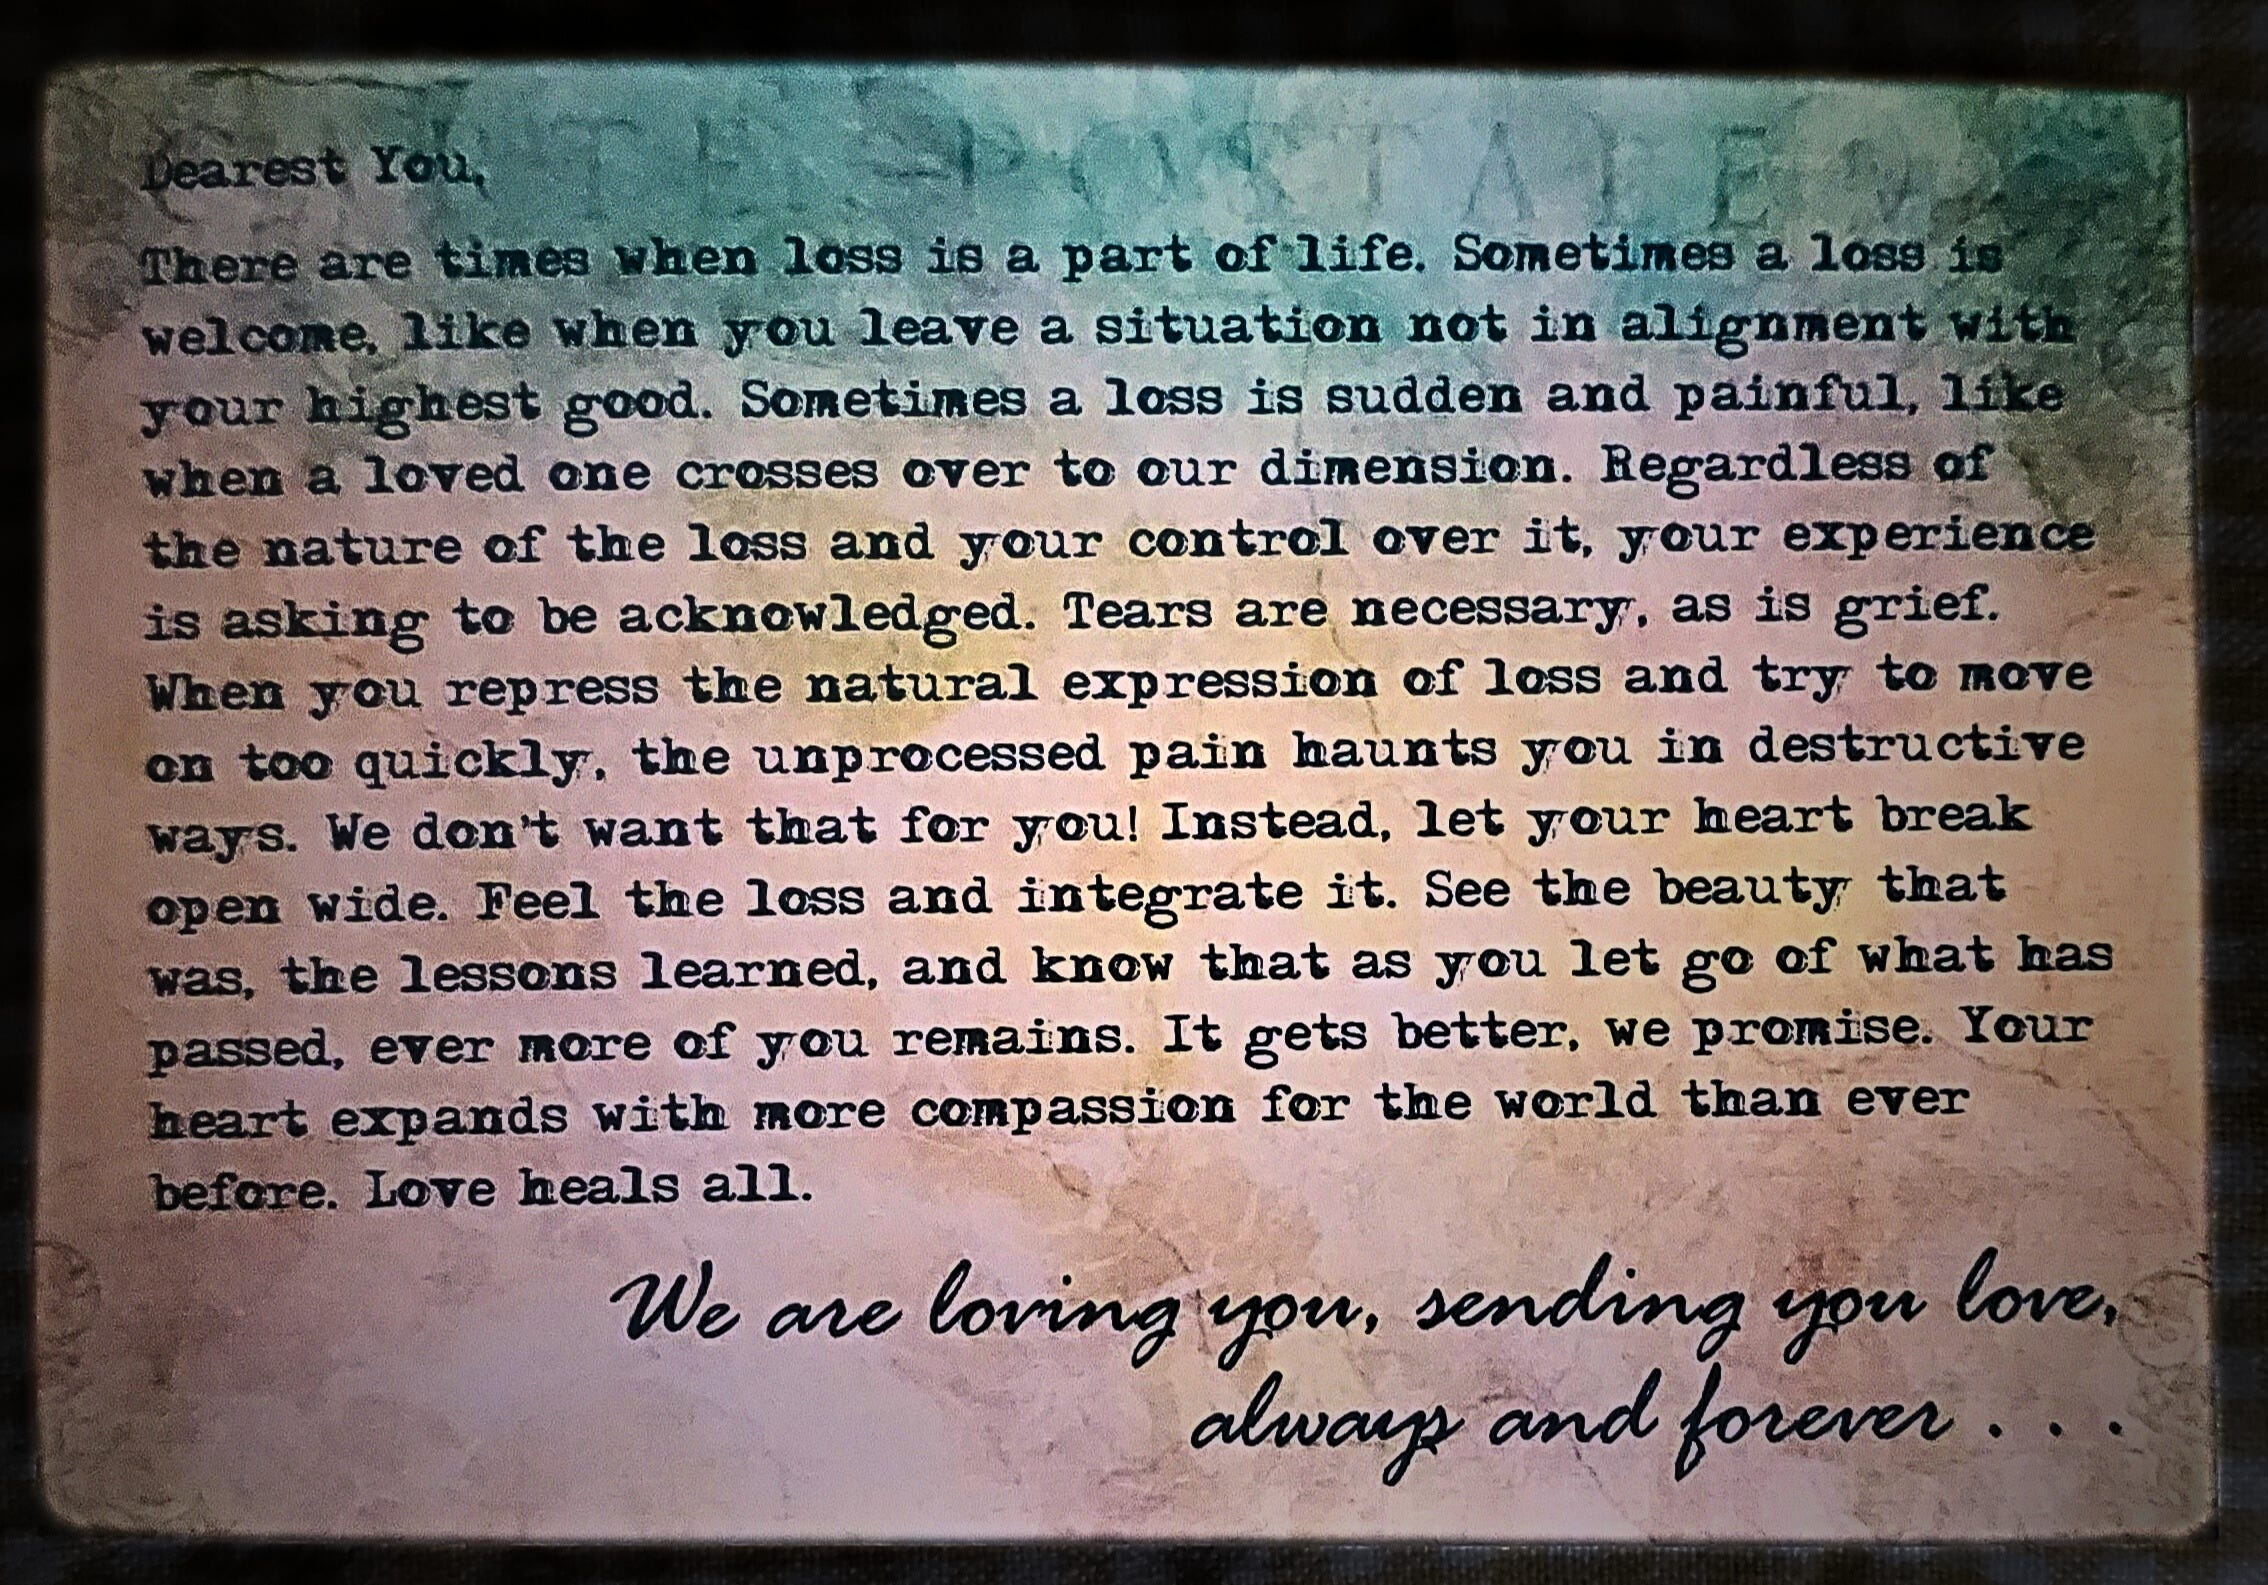 Dearest You,
There are times when loss is a part of life. Sometimes a loss is
welcome, like when you leave a situation not in alignment with
your highest good. Sometimes a loss is sudden and painful, like
when a loved one crosses over to our dimension. Regardless of
the nature of the loss and your control over it, your experience
is asking to be acknowledged. Tears are necessary, as is grief.
When you repress the natural expression of loss and try to move
on too quickly, the unprocessed pain haunts you in destructive
ways. We don't want that for you! Instead, let your heart break
open wide. Feel the loss and integrate it. See the beauty that
was, the lessons learned, and know that as you let go of what has
passed, ever more of you remains. It gets better, we promise. Your
heart expands with more compassion for the world than ever
before. Love heals all.
We are loving you, sending you love,
always and forever . . .